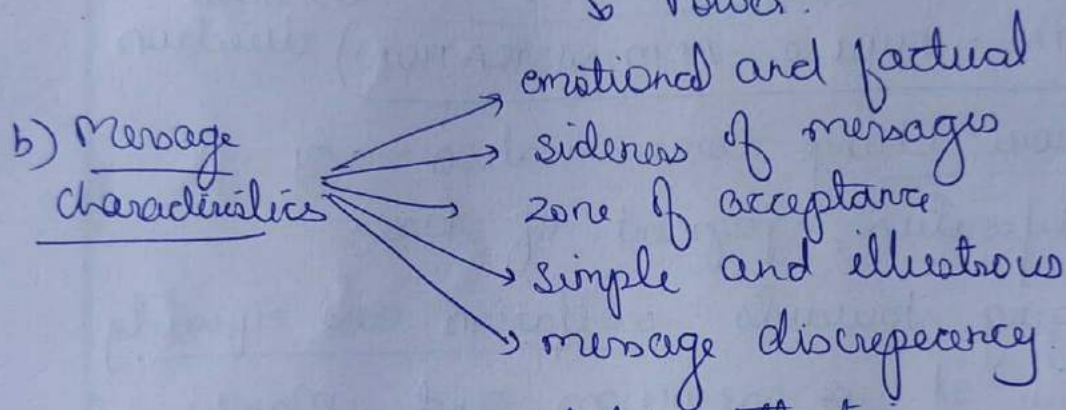 ↳ Power.
b) Message
characteristics
emotional and factual
sideness of messages
zone of acceptance
simple and illustrous
message discrepency